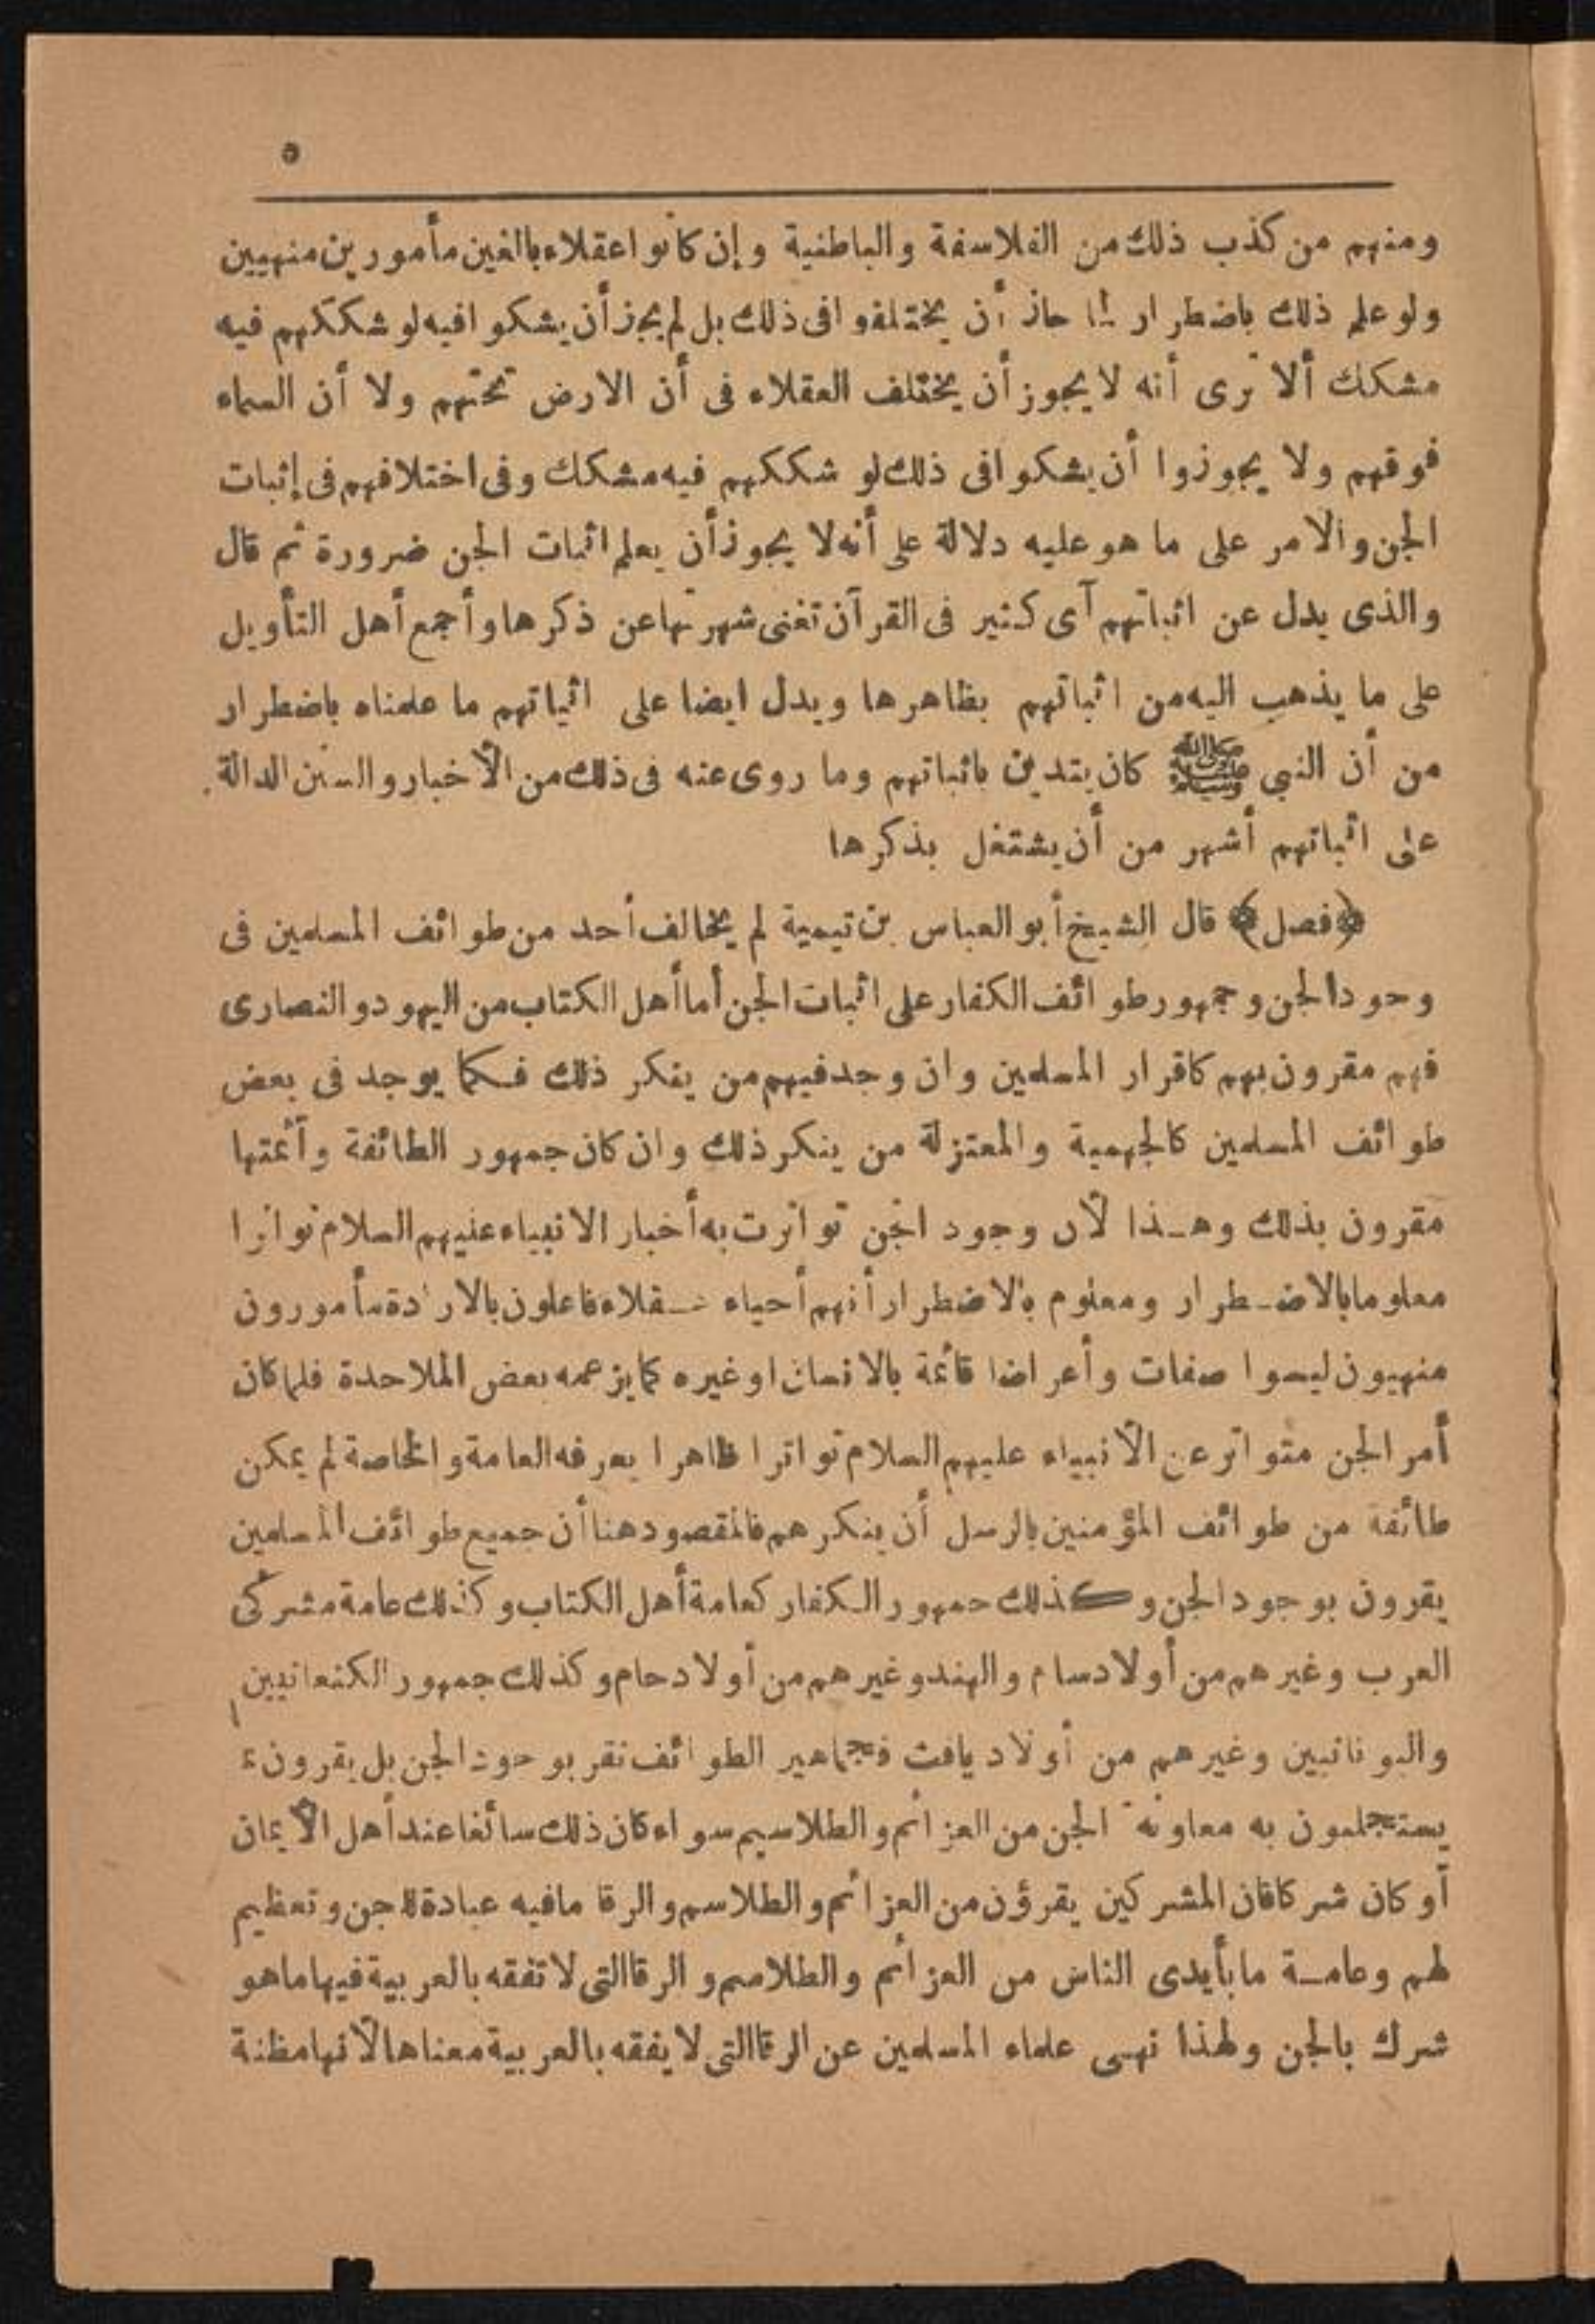 ٥
ومنهم من كذب ذلك من الفلاسفة والباطنية وإن كانوا عقلاء بالغين مأمورين منهيين
ولو علم ذلك باضطرار لما جاز أن يختلفوا فى ذلك بل لم يجز أن يشكوا فيه لو شككهم فيه
مشكك ألا ترى أنه لا يجوز أن يختلف العقلاء فى أن الارض تحتهم ولا أن السماء
فوقهم ولا يجوزوا أن يشكوا فى ذلك لو شككهم فيه مشكك وفى اختلافهم فى إثبات
الجن والأمر على ما هو عليه دلالة على أنه لا يجوز أن يعلم اثبات الجن ضرورة ثم قال
والذى يدل عن اثباتهم آى كثير فى القرآن تغنى شهرتها عن ذكرها وأجمع أهل التأويل
على ما يذهب اليه من اثباتهم بظاهرها ويدل ايضا على اثباتهم ما علمناه باضطرار
من أن النبي ﷺ كان يتدين باثباتهم وما روى عنه فى ذلك من الأخبار والسنن الدالة
على اثباتهم أشهر من أن يشتغل بذكرها
﴿فصل﴾ قال الشيخ أبو العباس بن تيمية لم يخالف أحد من طوائف المسلمين فى
وجود الجن وجمهور طوائف الكفار على اثبات الجن أما أهل الكتاب من اليهود والنصارى
فهم مقرون بهم كاقرار المسلمين وان وجد فيهم من ينكر ذلك فكما يوجد فى بعض
طوائف المسلمين كالجهمية والمعتزلة من ينكر ذلك وان كان جمهور الطائفة وأئمتها
مقرون بذلك وهـذا لأن وجود الجن تواترت به أخبار الانبياء عليهم السلام تواترا
معلوما بالاضـطرار ومعلوم بالاضطرار أنهم أحياء عـقلاء فاعلون بالارادة مأمورون
منهيون ليسوا صفات وأعراضا قائمة بالانسان او غيره كما يزعمه بعض الملاحدة فلما كان
أمر الجن متواتر عن الأنبياء عليهم السلام تواترا ظاهرا يعرفه العامة والخاصة لم يمكن
طائفة من طوائف المؤمنين بالرسل أن ينكرهم فالمقصود هنا أن جميع طوائف المسلمين
يقرون بوجود الجن وكذلك جمهور الكفار كعامة أهل الكتاب وكذلك عامة مشركى
العرب وغيرهم من أولاد سام والهند وغيرهم من أولاد حام وكذلك جمهور الكنعانيين
واليونانيين وغيرهم من أولاد يافث فجماهير الطوائف تقر بوجود الجن بل يقرون
يستجلبون به معاونة الجن من العزائم والطلاسيم سواء كان ذلك سائغا عند أهل الأيمان
أو كان شركا فان المشركين يقرؤن من العزائم والطلاسم والرقا ما فيه عبادة للجن وتعظيم
لهم وعامـة ما بأيدى الناس من العزائم والطلاسم والرقا التى لا تفقه بالعربية فيها ما هو
شرك بالجن ولهذا نهـى علماء المسلمين عن الرقا التى لا يفقه بالعربية معناها لأنها مظنة